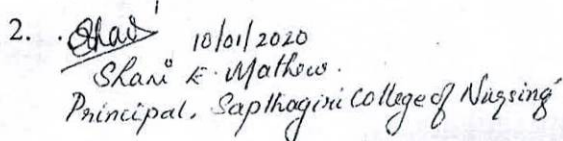 2. Shani 10/01/2020
Shani K. Mathew.
Principal, Sapthagiri College of Nursing